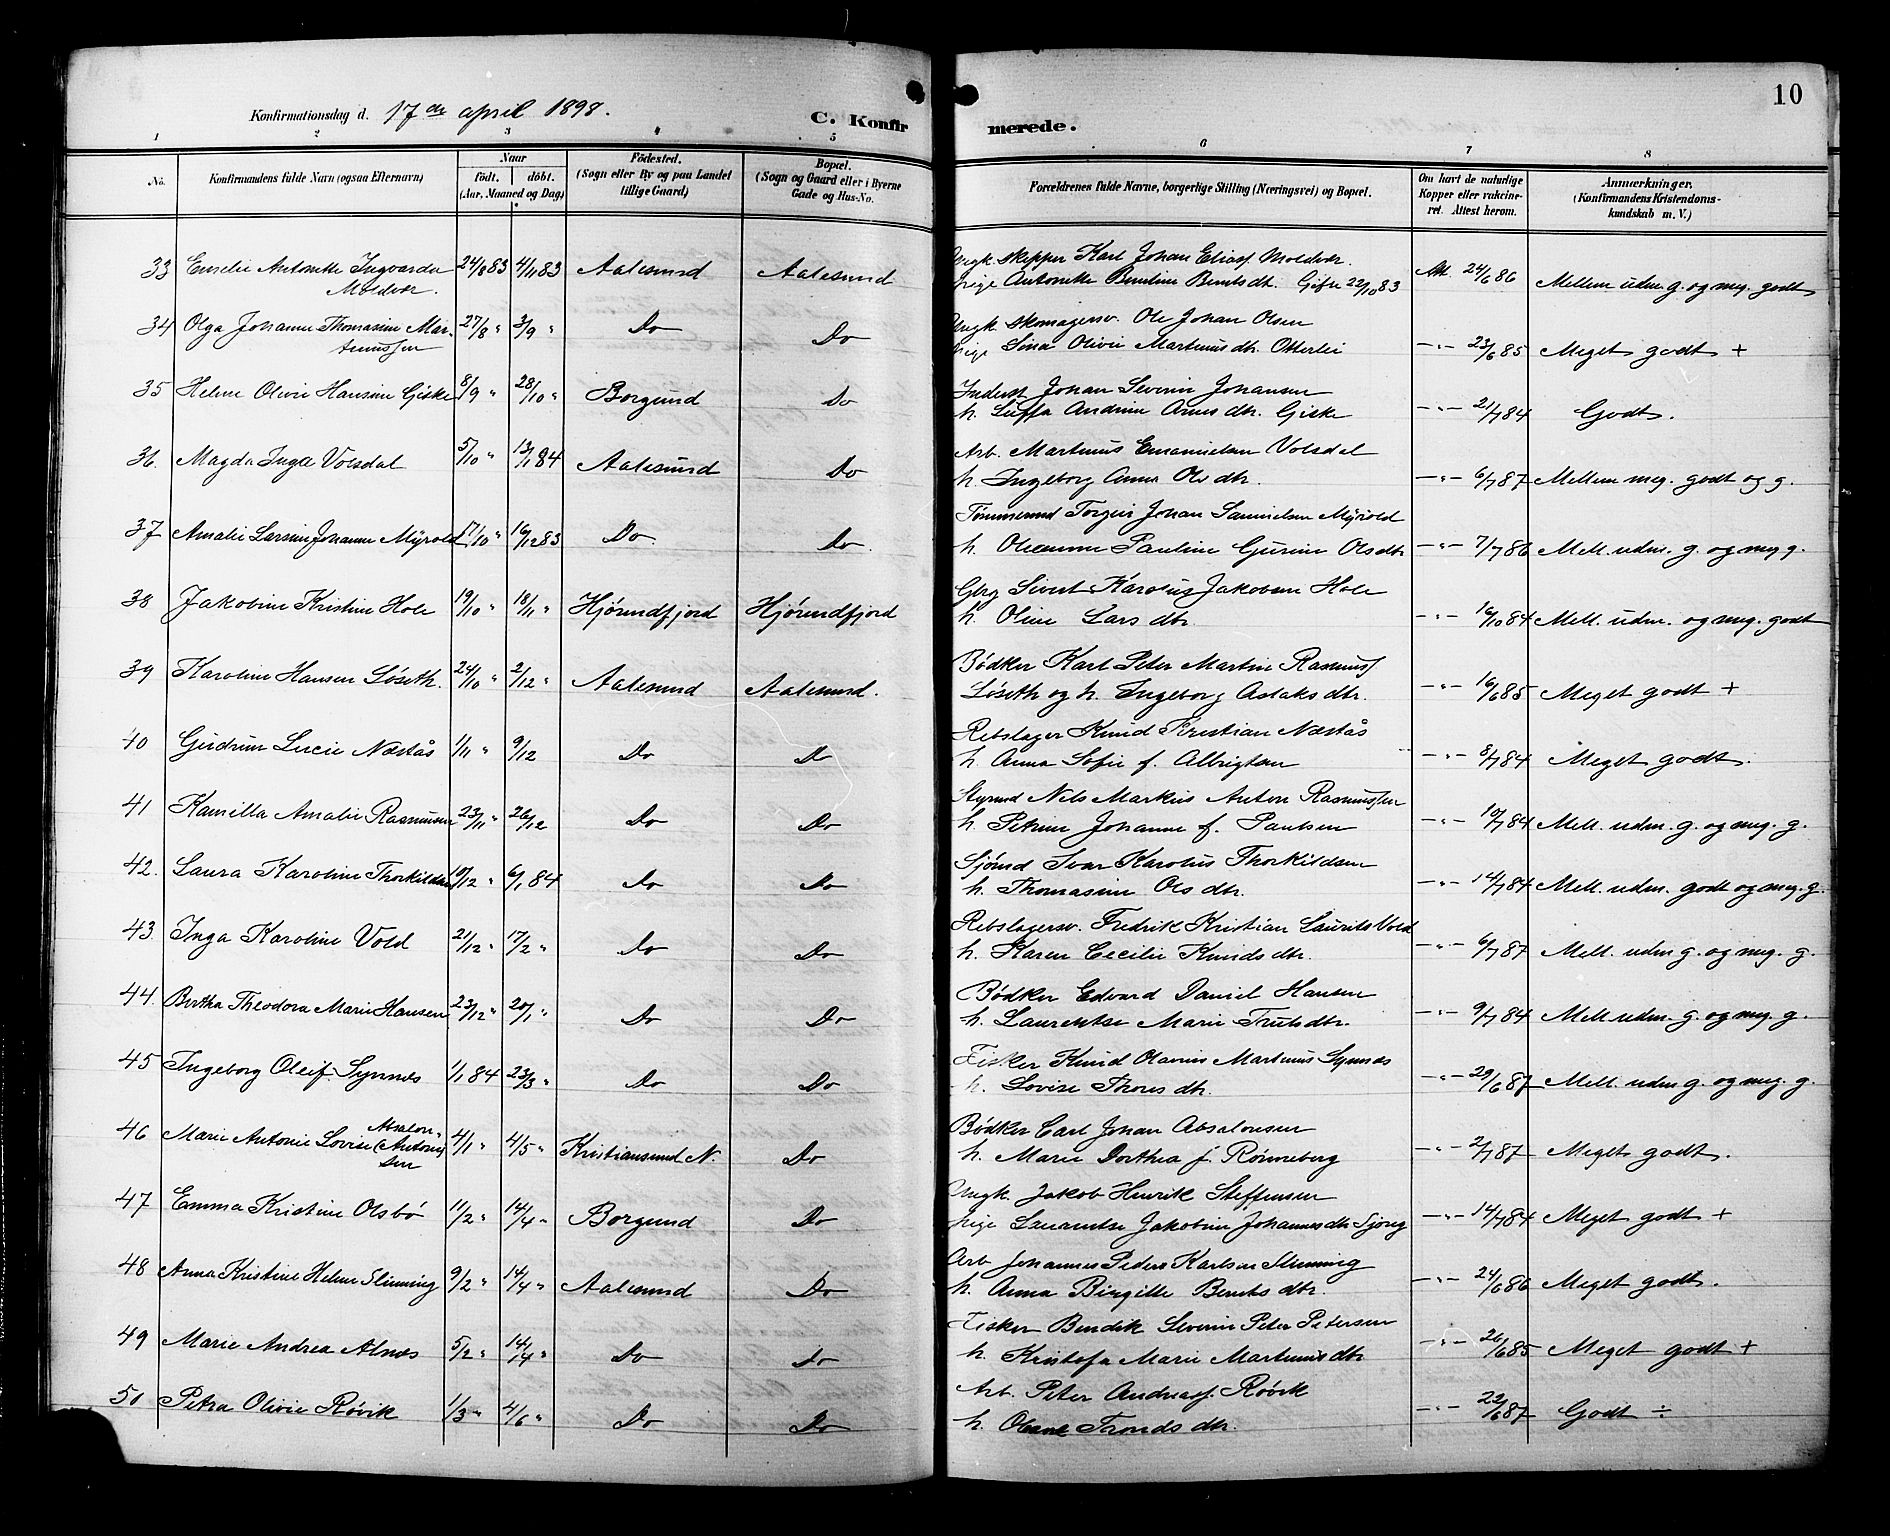 10
Konfirmationsdag d. 17de april 1898.
C. Konfir merede.
1 2 3 4 5 6 7 8
No.
Konfirmandens fulde Navn (ogsaa Efternavn)
Naar
födt. döbt.
(Aar, Maaned og Dag)
Födested.
(Sogn eller By og paa Landet
tillige Gaard)
Bopæl.
(Sogn og Gaard eller i Byerne
Gade og Hus-No.
Forældrenes fulde Navne, borgerlige Stilling (Næringsvei) og Bopæl.
Om havt de naturlige
Kopper eller vakcine-
ret. Attest herom.
Anmærkninger.
(Konfirmandens Kristendoms-
kundskab m. V.)
33 Emelie Antonette Ingvarda 24/8 83 4/11 83 Aalesund Aalesund Ungk. skipper Karl Johan Eliass Moldvær
Moldvær. Pige Antonette Bentine Bernts dt. Gifte 22/10 83 Att. 24/6 86 Mellem udm. g. og meg. godt
34 Olga Johanne Thomasine Mar- 27/8 " 3/9 " Do Do Ungk. skomagersv. Ole Johan Olsen
tinussen Pige Sina Olivie Martinus dtr. Otterlei -"- 23/6 85 Meget godt +
35 Helene Olivie Hansine Giske 8/9 " 28/10 " Borgund Do Inderst Johan Severin Johansen
h. Seffa Andrine Arnes dtr. Giske -"- 21/7 84 Godt.
36. Magda Inga Volsdal 5/10 " 13/1 84 Aalesund Do Arb. Martinus Emanuelsen Volsdal
h. Ingeborg Anna Ols dtr. -"- 6/7 87 Mellem meg. godt og g.
37 Amalie Larsine Johanne Myrvold 17/10 " 16/12 83 Do. Do. Tømmermd Torgeir Johan Samuelsen Myrvold
h. Oleanna Pauline Gurine Ols dtr -"- 7/7 86 Mell. udm. g. og meg g.
38 Jakobine Kristine Hole 19/10 " 18/11 " Hjörundfjord Hjörundfjord Gbrg Sivert Karolus Jakobsen Hole
h. Oline Lars dtr. -"- 16/10 84 Mell. udm. og meg. godt
39 Karoline Hansen Løseth. 24/10 " 2/12 " Aalesund Aalesund. Bödker Karl Peter Martin Rasmuss
Løseth og h. Ingeborg Aslaks dtr. -"- 16/6 85 Meget godt +
40 Gudrun Lucie Næstås 1/11 " 9/12 Do Do Rebslager Knud Kristian Næstås
h. Anna Sofie f. Albrigtsen -"- 8/7 84 Meget godt.
41 Kamilla Amalie Rasmussen 23/11 " 26/12 Do Do Styrmd Nels Markus Anton Rasmussen
h. Petrine Johanne f. Paulsen -"- 10/7 84 Mell. udm. g. og meg. g.
42. Laura Karoline Thorkildsen 10/12 " 6/1 84 Do Do Sjömd Ivar Karolus Thorkildsen
h. Thomasine Ols dtr. -"- 14/7 84 Mell. udm. godt og meg. g.
43. Inga Karoline Vold 21/12 " 17/2 " Do Do Rebslagersv. Fredrik Kristian Laurits Vold
h. Karen Cecilie Knuds dtr. -"- 6/7 87 Mell. udm g. og meg. g.
44. Bertha Theodora Marie Hansen 23/12 " 20/1 " Do Do Bödker Edvard Daniel Hansen
h. Laurentse Marie Truls dtr. -"- 9/7 84 Mell udm. g. og meg. g.
45 Ingeborg Oleif. Synnes 1/1 84 23/3 " Do Do Fisker Knud Olavus Martinus Synnes
h. Lovise Thores dtr. -"- 29/6 87 Mell. udm g. og meg. g.
46 Marie Antonie Lovise Absalon- (Antoni sen 4/1 " 4/5 " Kristiansund N. Do Bödker Carl Johan Absalonsen
h. Marie Dorthea f. Rönneberg -"- 2/7 87 Meget godt.
47 Emma Kristine Olsbö 11/2 " 14/4 " Borgund Do Ungk. Jakob Henrik Steffensen
Pige Laurentse Jakobine Johannes dtr Sjong -"- 14/7 84 Meget godt +
48 Anna Kristine Helene Slinning 9/2 " 14/4 " Aalesund Do Arb Johannes Peder Karlsen Slinning
h. Anna Birgitte Bernts dtr. -"- 24/6 86 Meget godt.
49 Marie Andrea Alnes 5/2 " 14/4 " Do Do Fisker Bendik Severin Peter Petersen
h. Kristofa Marie Martinus dtr -"- 26/6 85 Meget godt +
50 Petra Olivie Rövik 1/3 " 4/6 " Do Do Arb. Peter Andreass. Rövik
h. Oleane Tronds dtr. -"- 22/6 87 Godt ÷